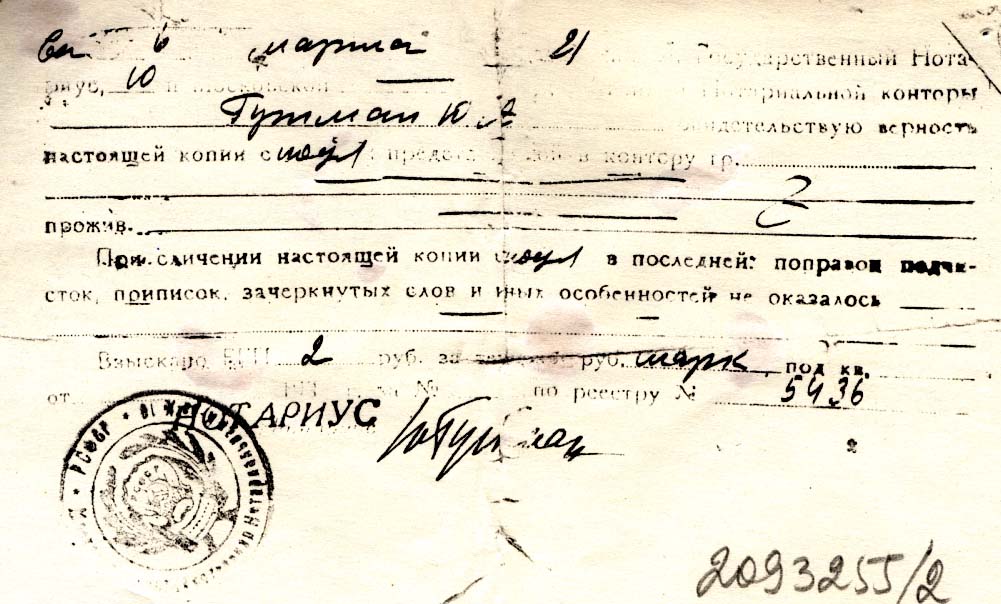 6 марта 21 Государственный Нота-
риус, 10 й Московской Нотариальной конторы
Гутман Ю А свидетельствую верность
настоящей копии с в контору гр.
прожив.
При сличении настоящей копии с в последней: поправок подчи-
сток, приписок, зачеркнутых слов и иных особенностей не оказалось
Взыскано 2 руб. за руб. марк под кв.
от № по реестру № 5436
НОТАРИУС
РСФСР
2093255/2